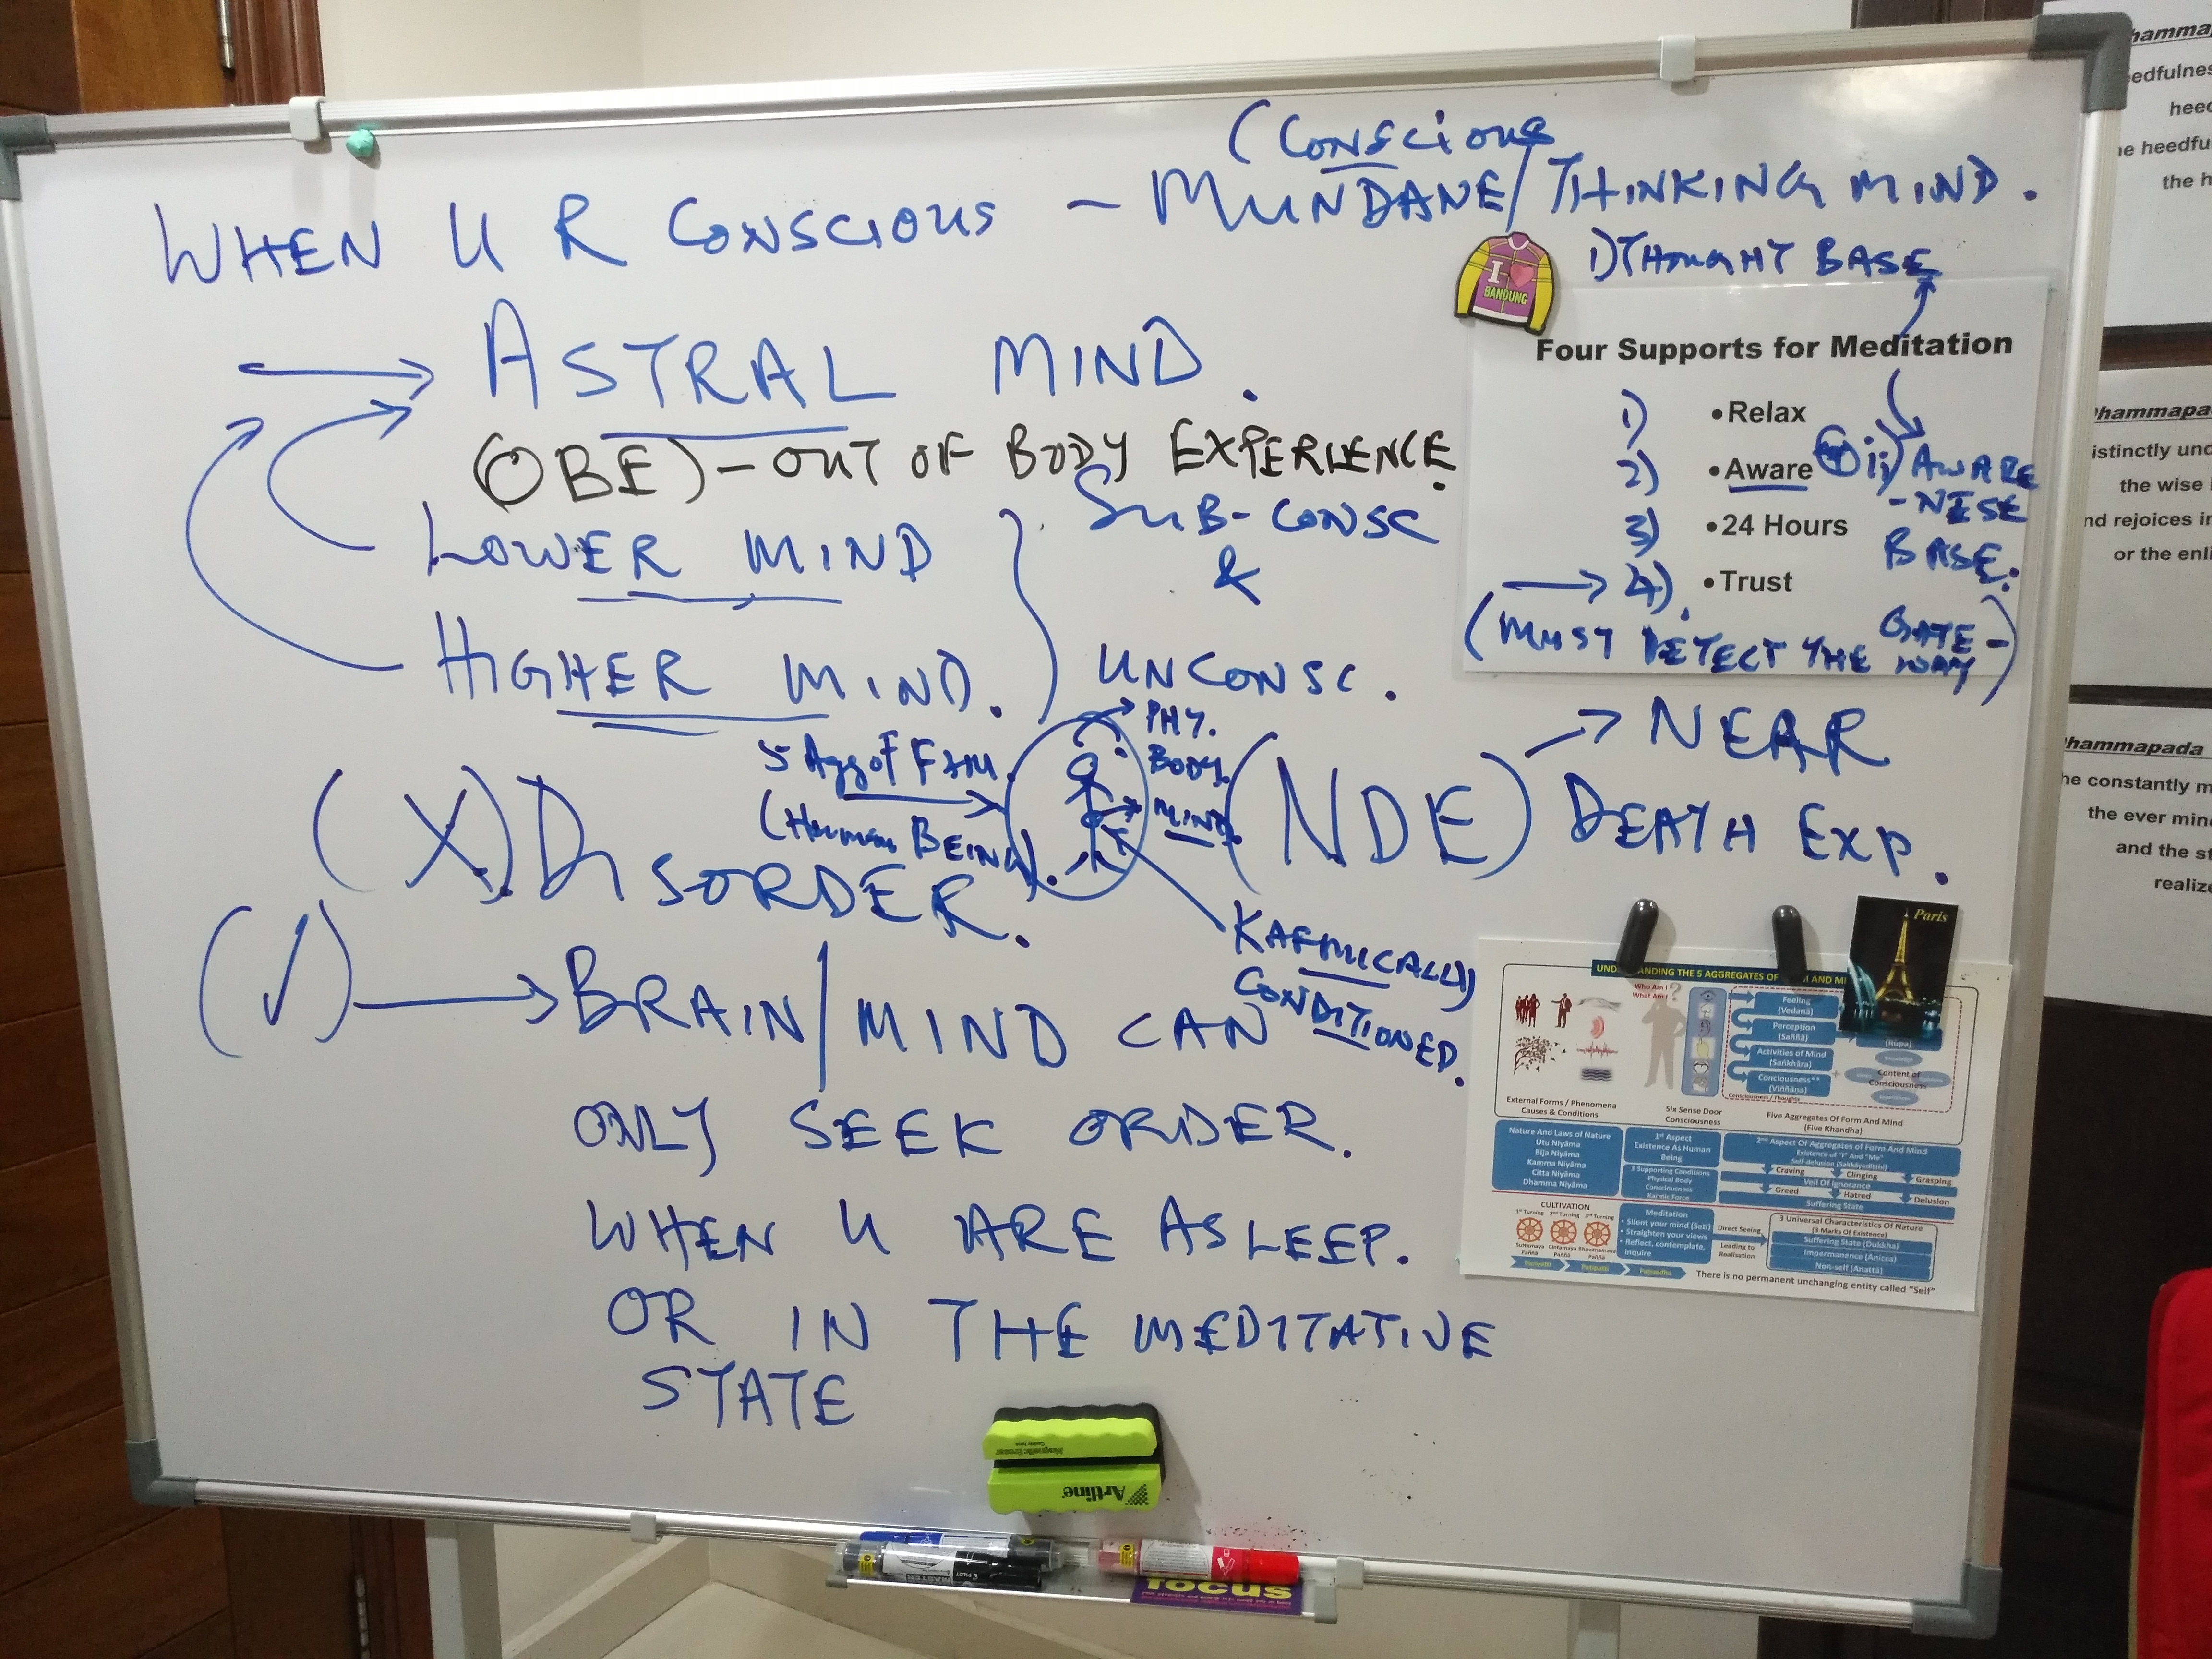 (Conscious
WHEN U R CONSCIOUS – MUNDANE/THINKING MIND.
1) THOUGHT BASE
I
BANDUNG
ASTRAL MIND.
(OBE) – OUT OF BODY EXPERIENCE.
LOWER MIND
SUB-CONSC
&
HIGHER MIND.
UNCONSC.
Four Supports for Meditation
1) •Relax
2) •Aware
ii) AWARE
-NESE
BASE.
3) •24 Hours
4). •Trust
(MUST DETECT THE GATE-
WAY)
5 Agg of F&M.
(Human BEING).
PHY.
BODY.
MIND.
(NDE) NEAR
DEATH EXP.
KARMICALLY
CONDITIONED.
(X). DISORDER.
(✓) BRAIN/MIND CAN
ONLY SEEK ORDER.
WHEN U ARE ASLEEP.
OR IN THE MEDITATIVE
STATE
Paris
Who Am I
What Am I ?
Feeling
(Vedanā)
Perception
(Saññā)
Activities of Mind
(Saṅkhāra)
Conciousness**
(Viññāṇa)
Consciousness / Thoughts
(Rūpa)
Content of
Consciousness
External Forms / Phenomena
Causes & Conditions
Six Sense Door
Consciousness
Five Aggregates Of Form And Mind
(Five Khandha)
Nature And Laws of Nature
Utu Niyāma
Bija Niyāma
Kamma Niyāma
Citta Niyāma
Dhamma Niyāma
1st Aspect
Existence As Human
Being
3 Supporting Conditions
Physical Body
Consciousness
Karmic Force
2nd Aspect Of Aggregates of Form And Mind
Existence of "I" And "Me"
Self-delusion (Sakkāyadiṭṭhi)
Craving Clinging Grasping
Veil Of Ignorance
Greed Hatred Delusion
Suffering State
CULTIVATION
1st Turning 2nd Turning 3rd Turning
Meditation
• Silent your mind (Sati)
• Straighten your views
• Reflect, contemplate,
inquire
Direct Seeing
Leading to
Realisation
3 Universal Characteristics Of Nature
(3 Marks Of Existence)
Suffering State (Dukkha)
Impermanence (Anicca)
Non-self (Anattā)
There is no permanent unchanging entity called "Self"
Artline
PILOT
focus
the wise
and rejoices in
Dhammapada
the ever
and the